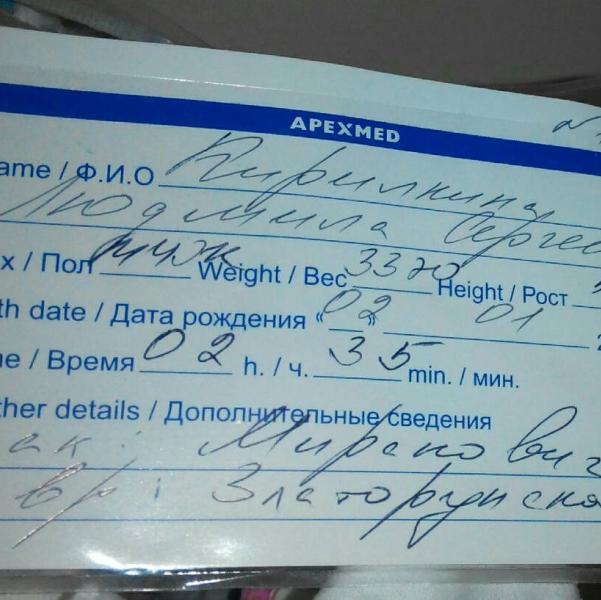 APEXMED
ame / Ф.И.О Кирилкина
Людмила Сергее
x / Пол муж Weight / Вес 3370 Height / Рост
th date / Дата рождения "02" 01
ne / Время 02 h. / ч. 35 min. / мин.
ther details / Дополнительные сведения
ак: Миракови
вр: Златогу